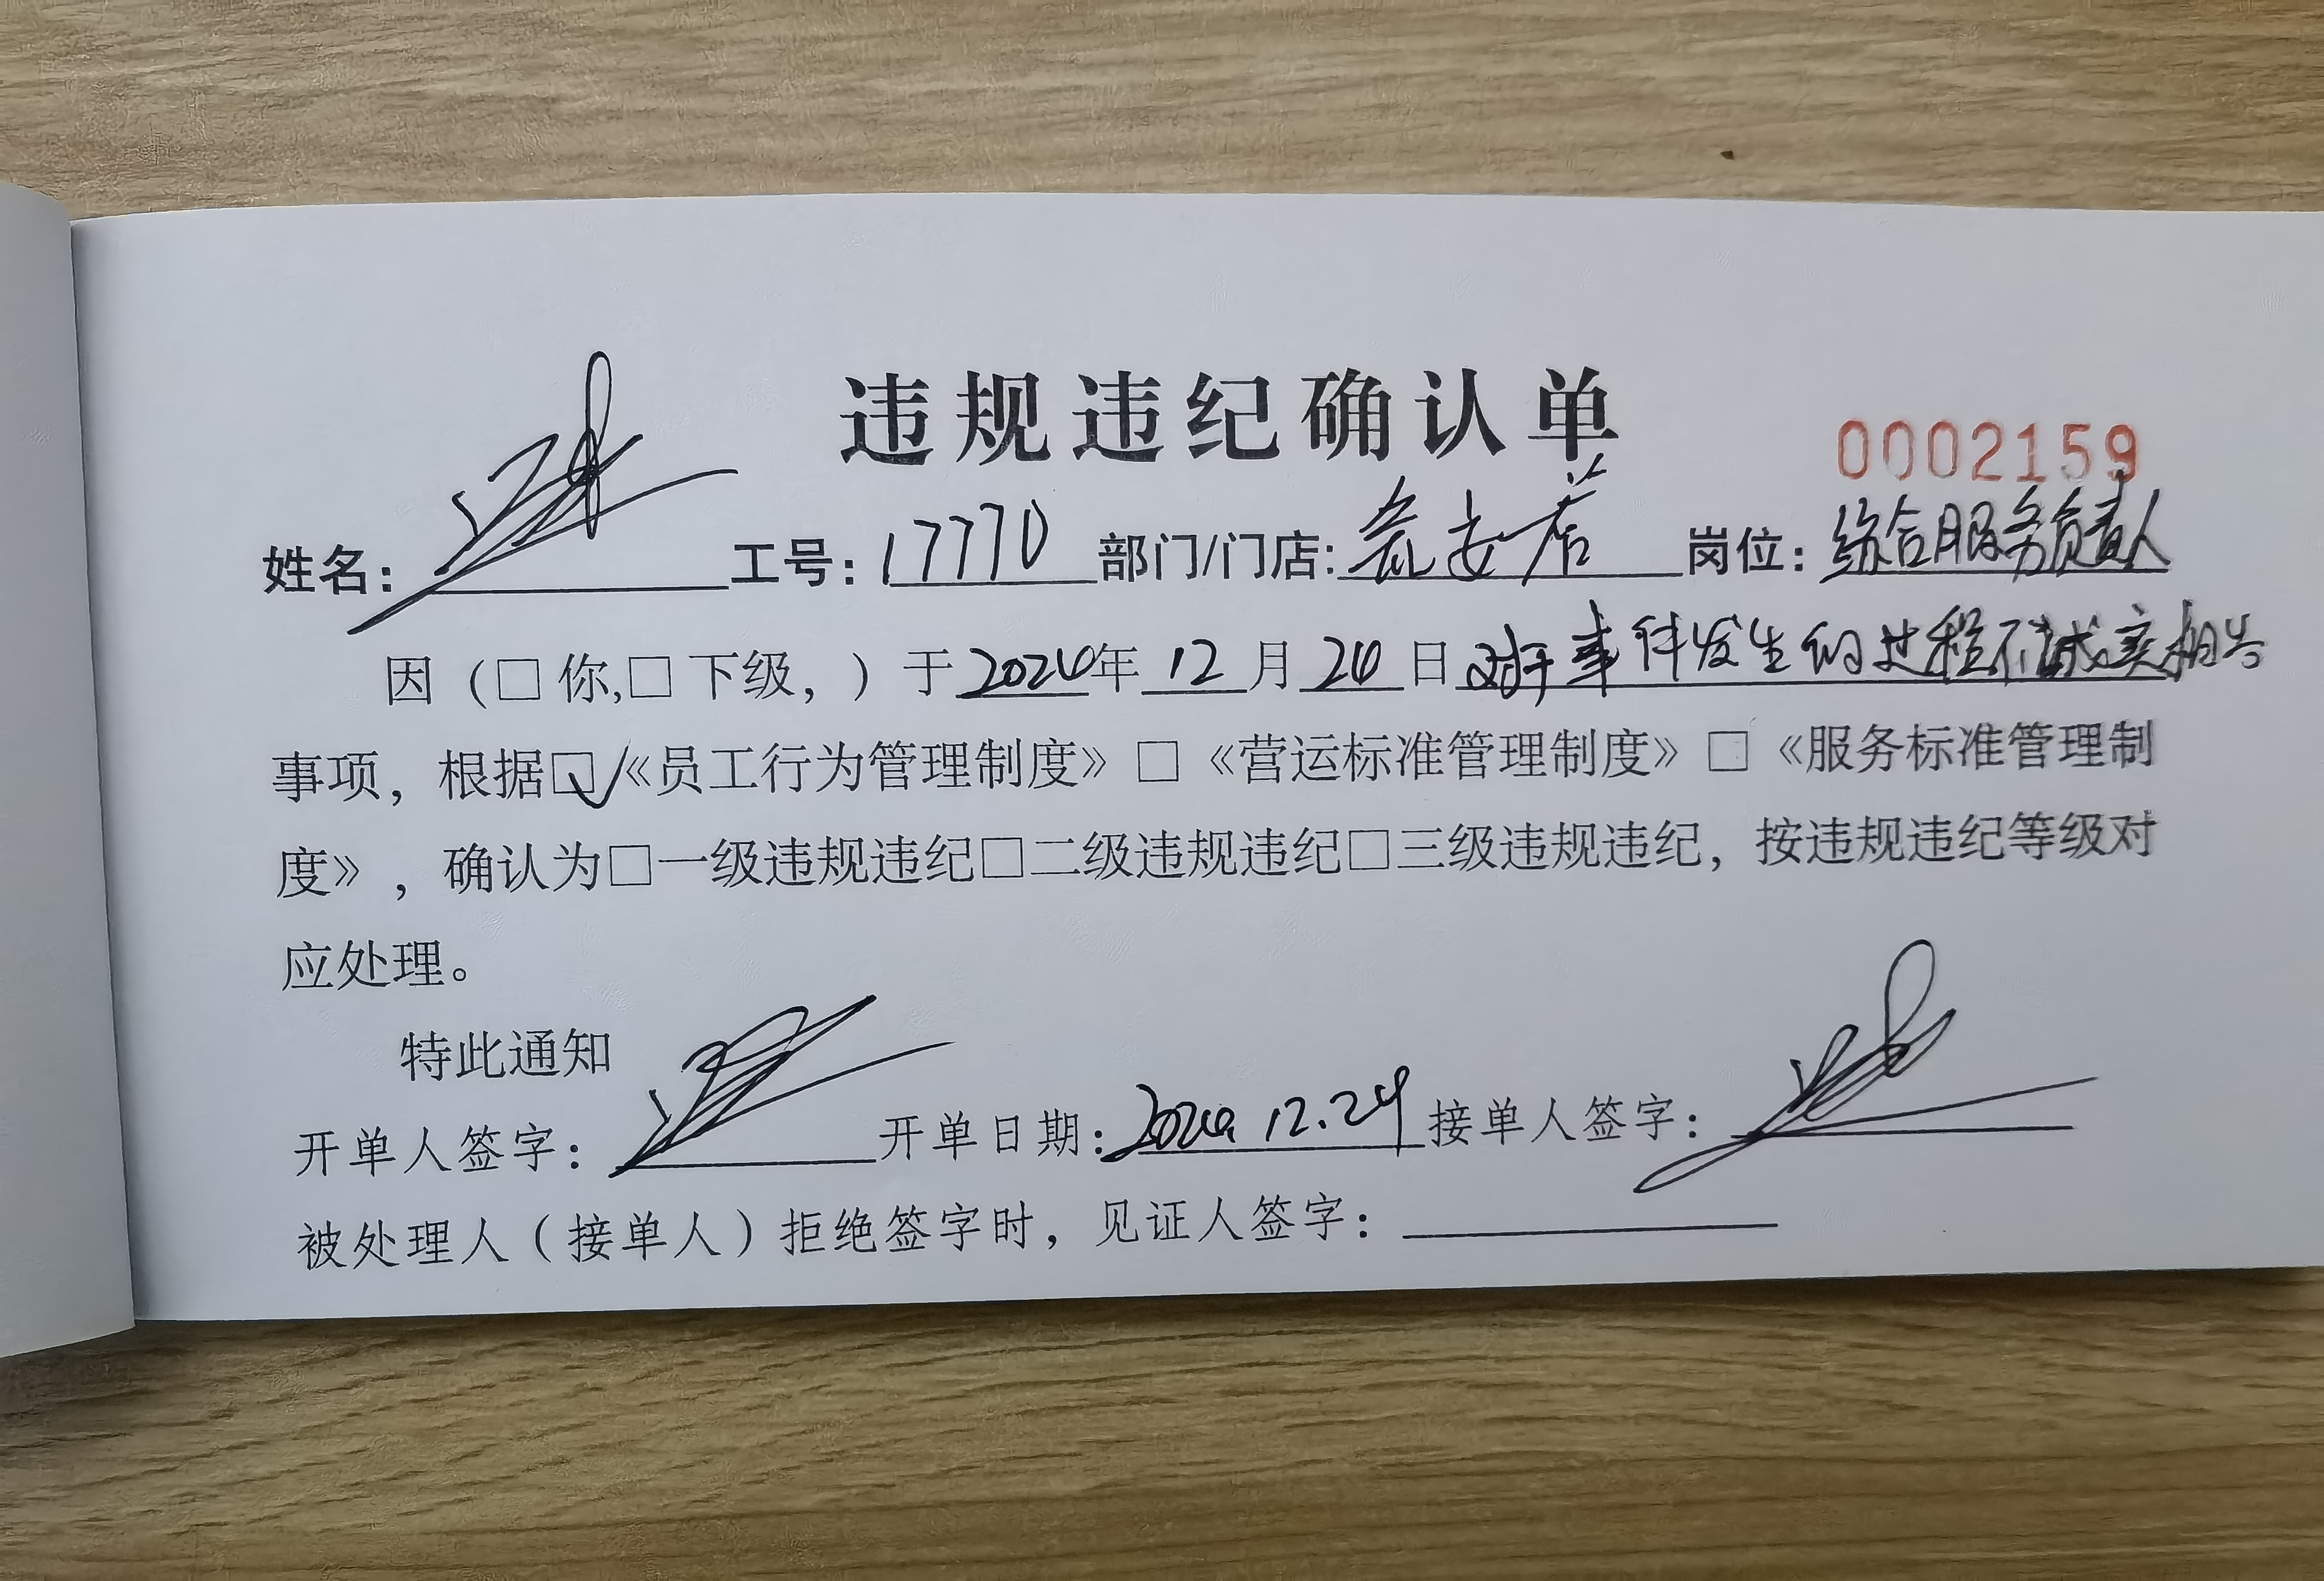 违规违纪确认单
0002159
姓名： 工号：17770 部门/门店： 岗位：综合服务负责人
因（□你,□下级，）于2024年12月24日对于事件发生的过程不诚实相告
事项，根据☑《员工行为管理制度》□《营运标准管理制度》□《服务标准管理制
度》，确认为□一级违规违纪□二级违规违纪□三级违规违纪，按违规违纪等级对
应处理。
特此通知
开单人签字： 开单日期：2024.12.24 接单人签字：
被处理人（接单人）拒绝签字时，见证人签字：